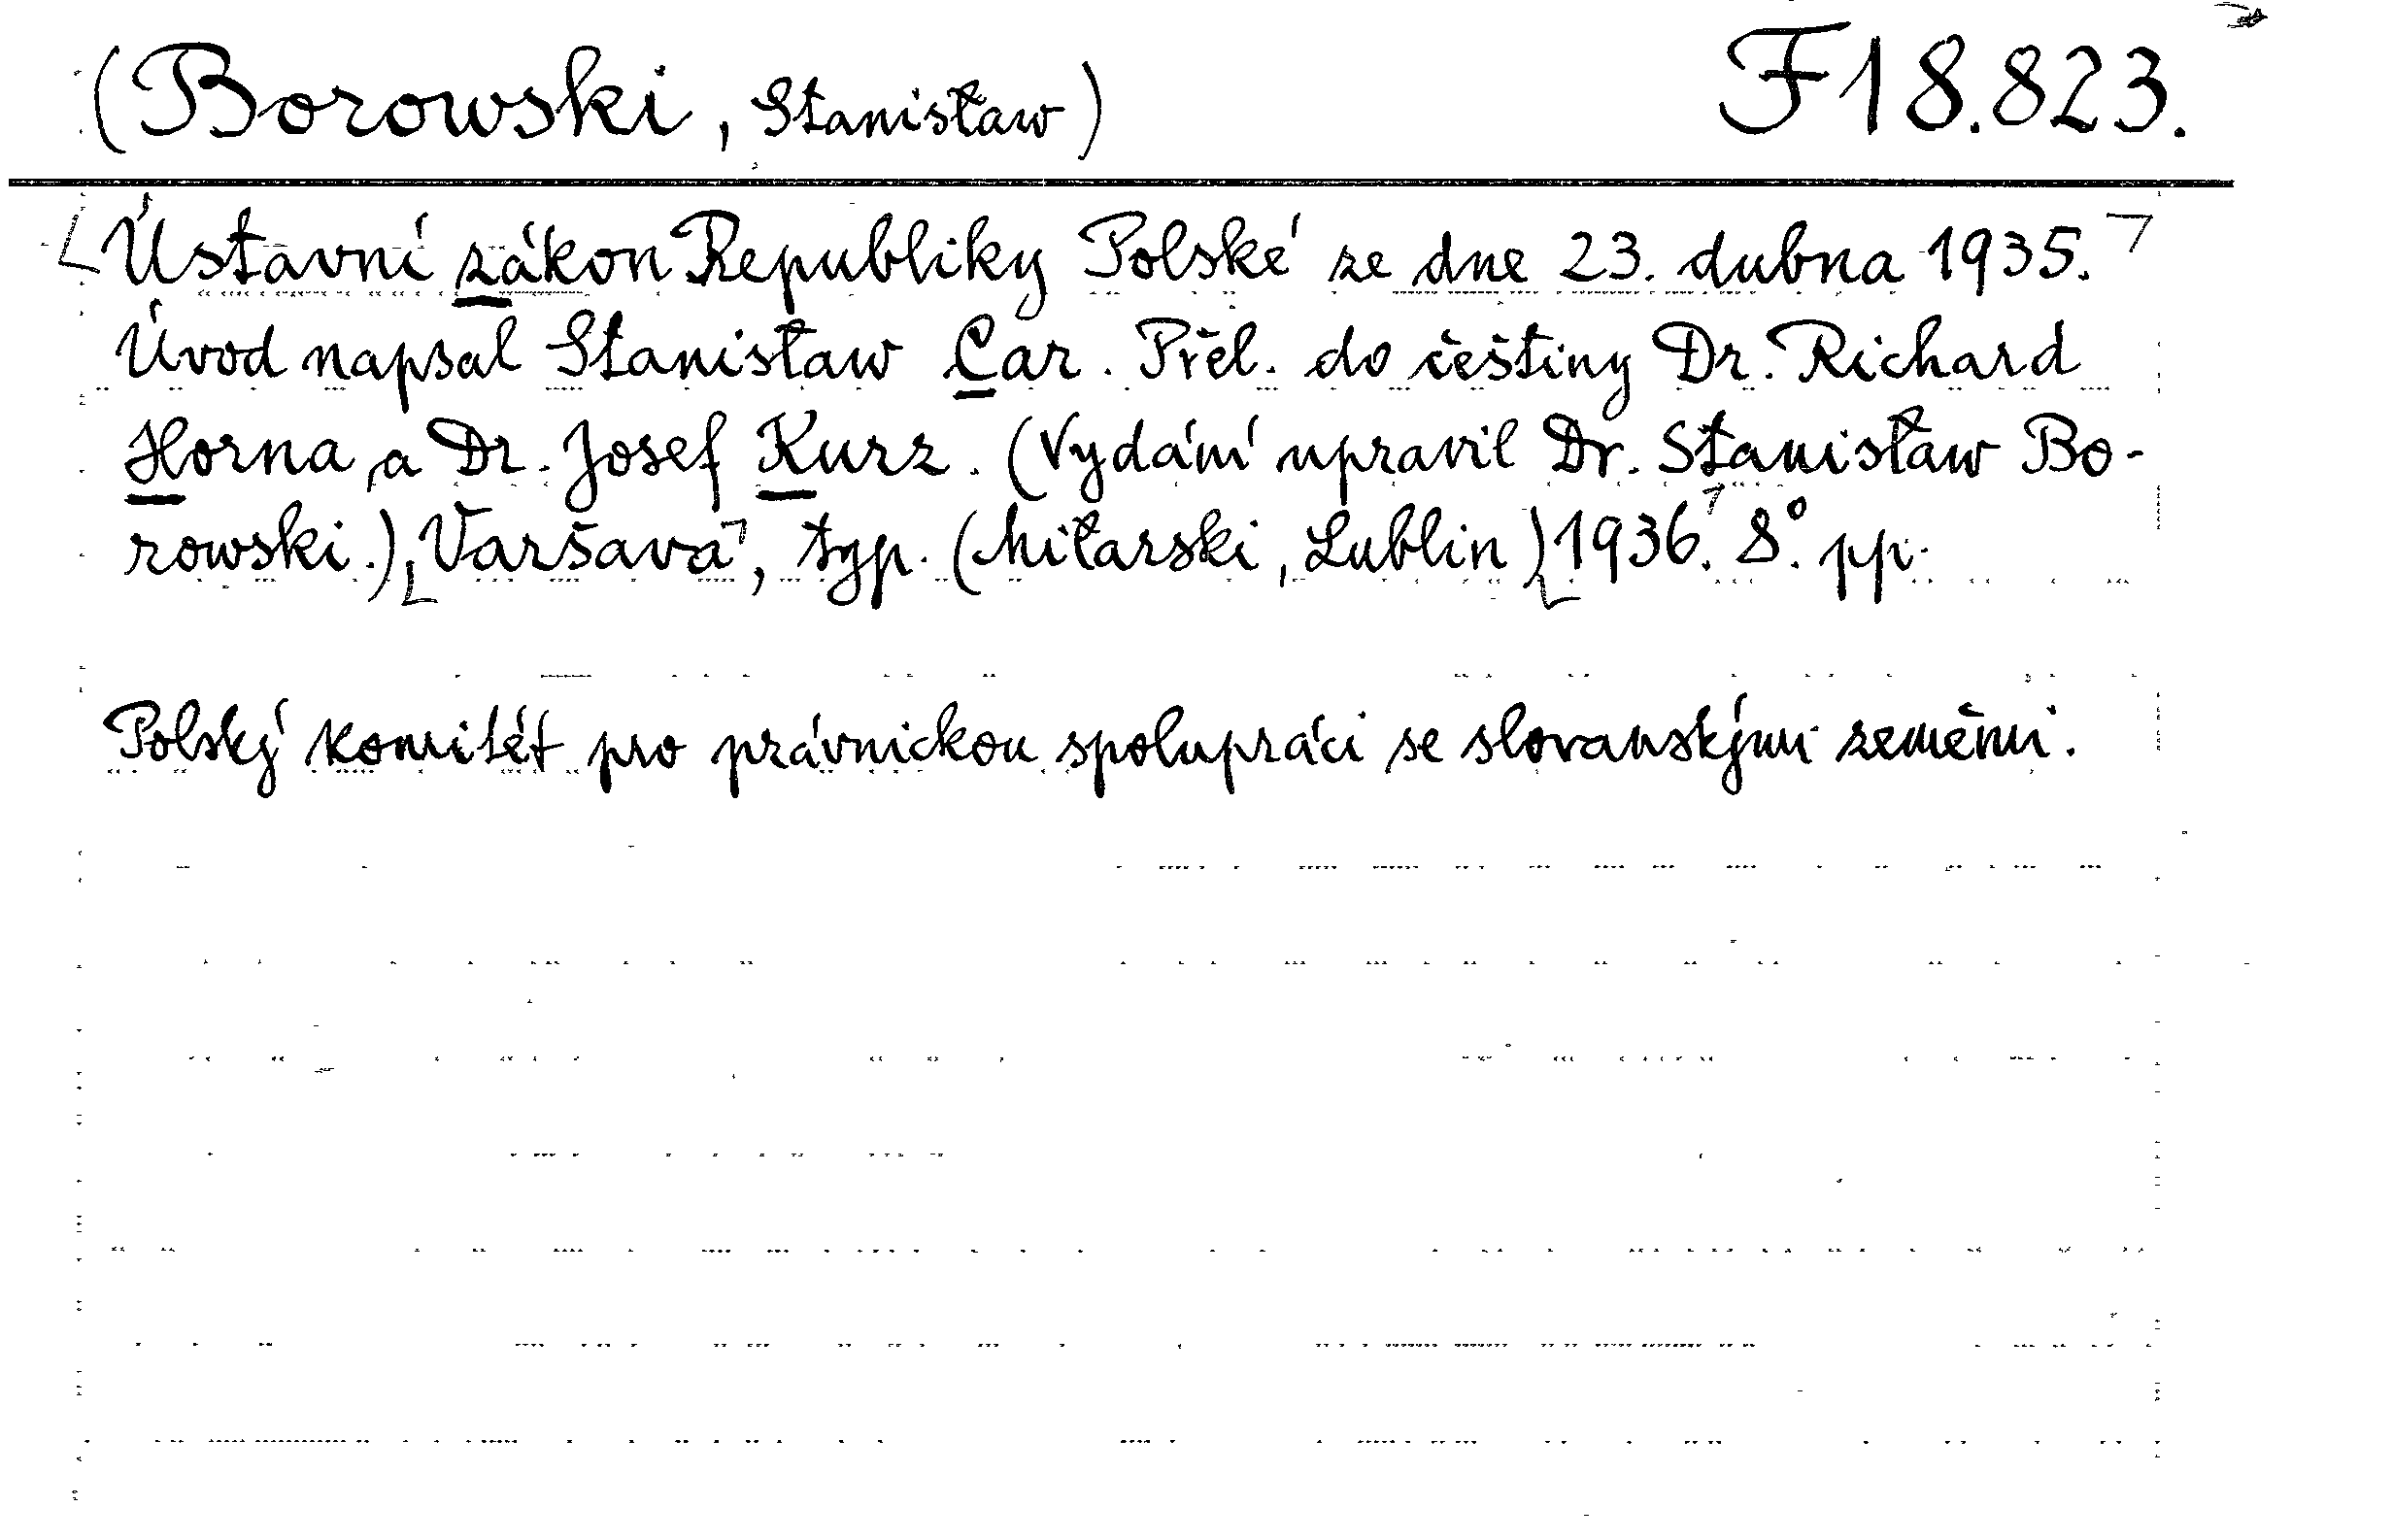 (Borowski, Stanisław) F 18.823.
Ústavní zákon Republiky Polské ze dne 23. dubna 1935.
Úvod napsal Stanisław Car. Přel. do češtiny Dr. Richard
Horna a Dr. Josef Kurz. (Vydání upravil Dr. Stanisław Bo-
rowski.) Varšava, typ. (Miłarski, Lublin) 1936. 8°. pp.
Polský komitét pro právnickou spolupráci se slovanskými zeměmi.